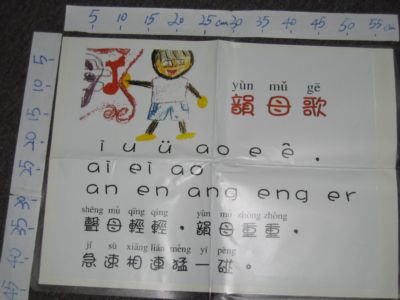 5 10 15 20 25 cm 30 35 40 45 50 55 cm
5 10 15 20 25 30 35 40 45
yùn mǔ gē
韻母歌
i u ü ao e ê .
ai ei ao
an en ang eng er
shēng mǔ qīng qīng yùn mǔ zhòng zhòng
聲母輕輕。韻母重重。
jí sù xiāng lián měng yī pèng
急速相連猛一碰。